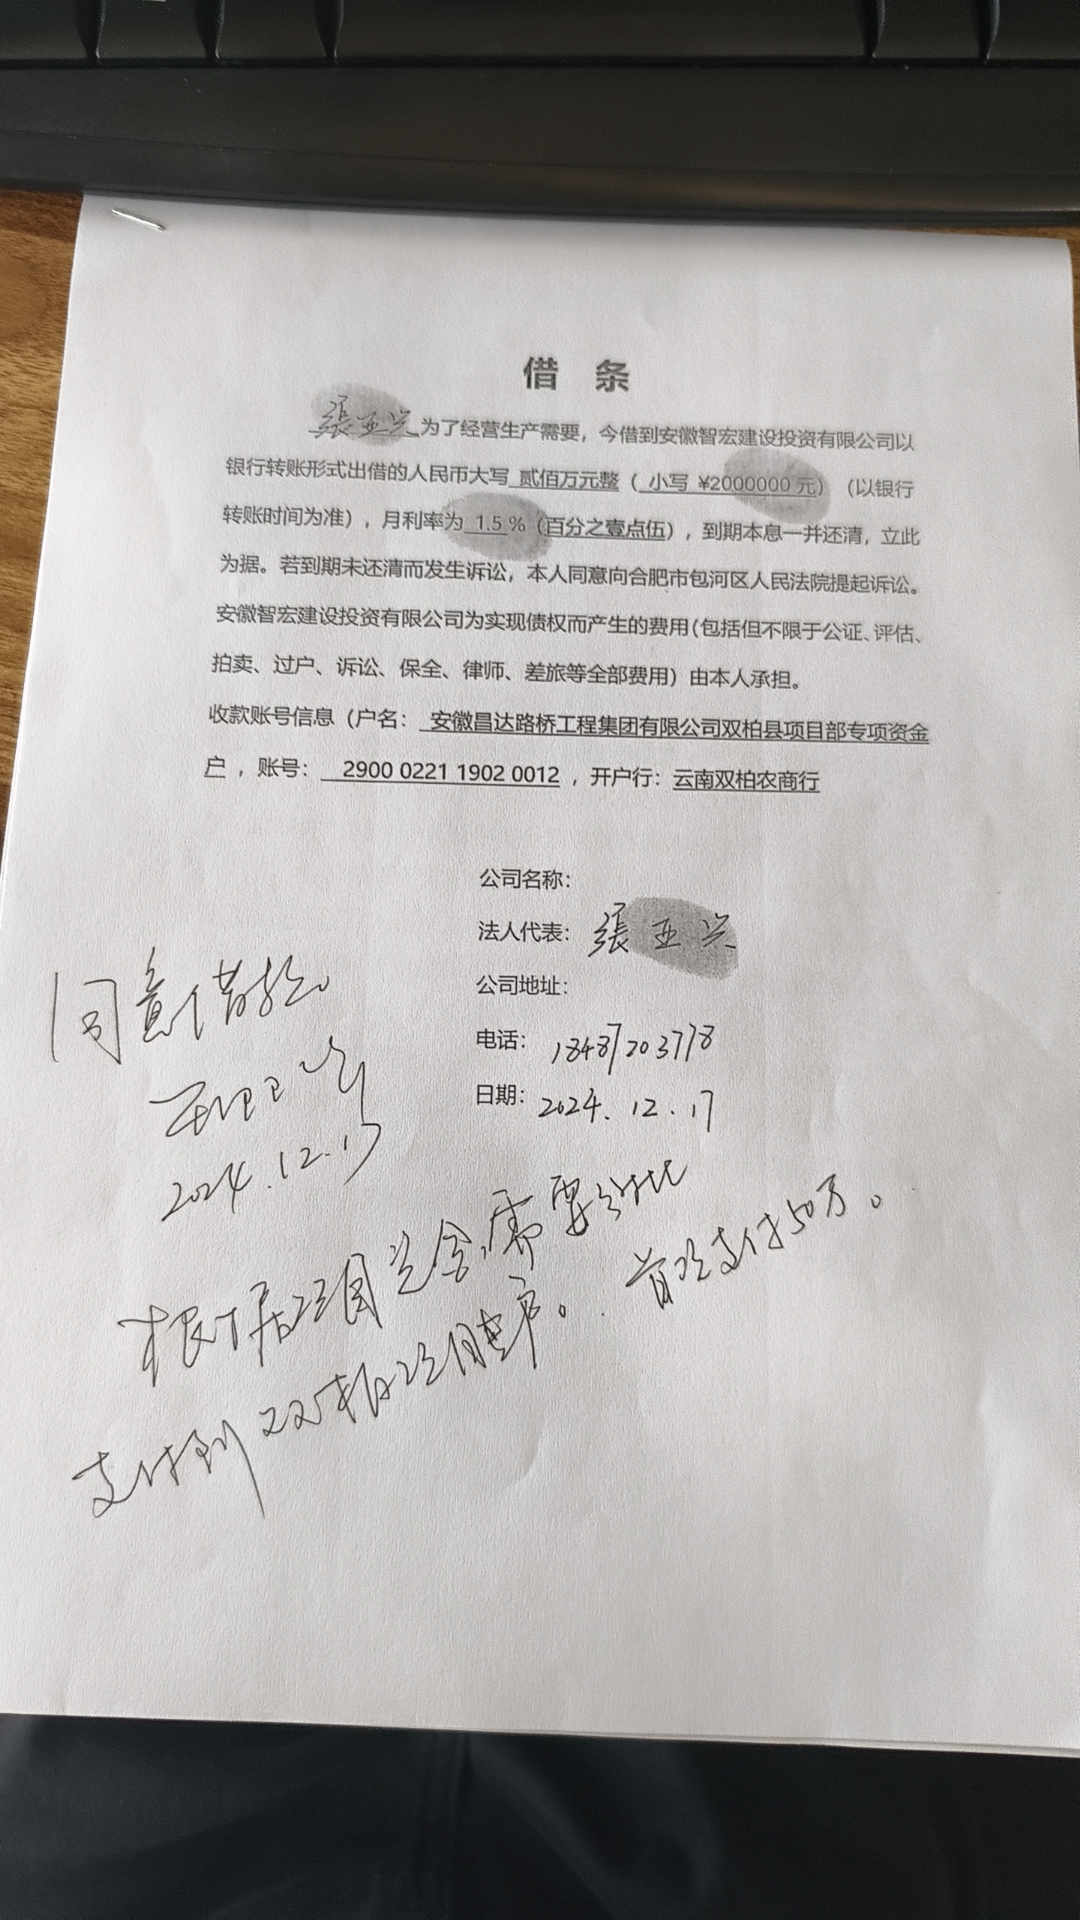 借 条
張亚兴为了经营生产需要，今借到安徽智宏建设投资有限公司以
银行转账形式出借的人民币大写 贰佰万元整（ 小写 ¥2000000 元）（以银行
转账时间为准），月利率为 1.5 %（百分之壹点伍），到期本息一并还清，立此
为据。若到期未还清而发生诉讼，本人同意向合肥市包河区人民法院提起诉讼。
安徽智宏建设投资有限公司为实现债权而产生的费用（包括但不限于公证、评估、
拍卖、过户、诉讼、保全、律师、差旅等全部费用）由本人承担。
收款账号信息（户名： 安徽昌达路桥工程集团有限公司双柏县项目部专项资金
户 ，账号： 2900 0221 1902 0012 ，开户行：云南双柏农商行
公司名称：
法人代表：張亚兴
公司地址：
电话：18487203778
日期：2024.12.17
同意借款
2024.12.17
根据项目总会，需要分批
支付到双柏项目专户。首次支付50万。